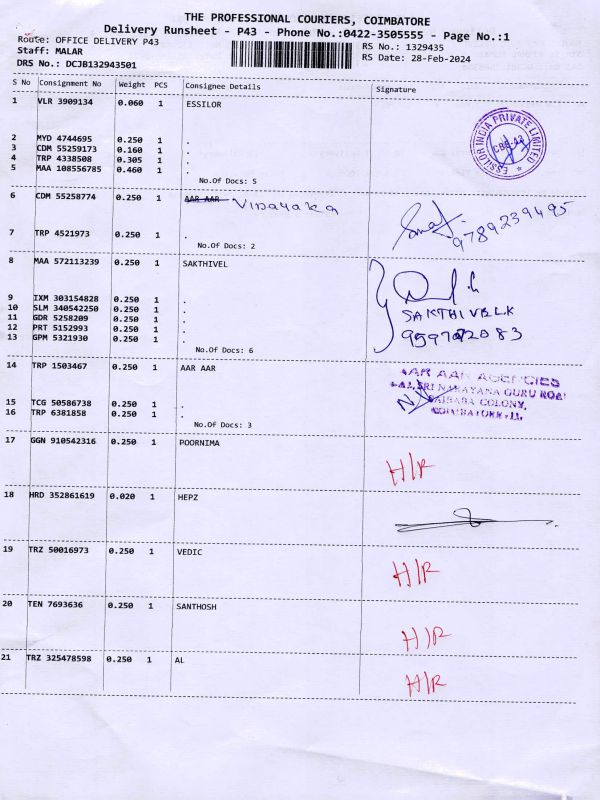 THE PROFESSIONAL COURIERS, COIMBATORE
Delivery Runsheet - P43 - Phone No.:0422-3505555 - Page No.:1
Route: OFFICE DELIVERY P43
Staff: MALAR
DRS No.: DCJB132943501
RS No.: 1329435
RS Date: 28-Feb-2024
S No Consignment No Weight PCS Consignee Details Signature
1 VLR 3909134 0.060 1 ESSILOR
ESSILOR INDIA PRIVATE LIMITED
2 MYD 4744695 0.250 1 .
3 CDM 55259173 0.160 1 .
4 TRP 4338508 0.305 1 .
5 MAA 108556785 0.460 1 .
No.Of Docs: 5
6 CDM 55258774 0.250 1 AAR AAR Vinayaka
9789239495
7 TRP 4521973 0.250 1 .
No.Of Docs: 2
8 MAA 572113239 0.250 1 SAKTHIVEL
9 IXM 303154828 0.250 1 .
10 SLM 340542250 0.250 1 .
SAKTHIVELK
11 GDR 5258209 0.250 1 .
12 PRT 5152993 0.250 1 .
13 GPM 5321930 0.250 1 .
No.Of Docs: 6
14 TRP 1503467 0.250 1 AAR AAR
AAR AAR AGENCIES
SRI NARAYANA GURU ROAD
SAIBABA COLONY,
COIMBATORE-11.
15 TCG 50586738 0.250 1 .
16 TRP 6381858 0.250 1 .
No.Of Docs: 3
17 GGN 910542316 0.250 1 POORNIMA
H/R
18 HRD 352861619 0.020 1 HEPZ
19 TRZ 50016973 0.250 1 VEDIC
H/R
20 TEN 7693636 0.250 1 SANTHOSH
H/R
21 TRZ 325478598 0.250 1 AL
H/R